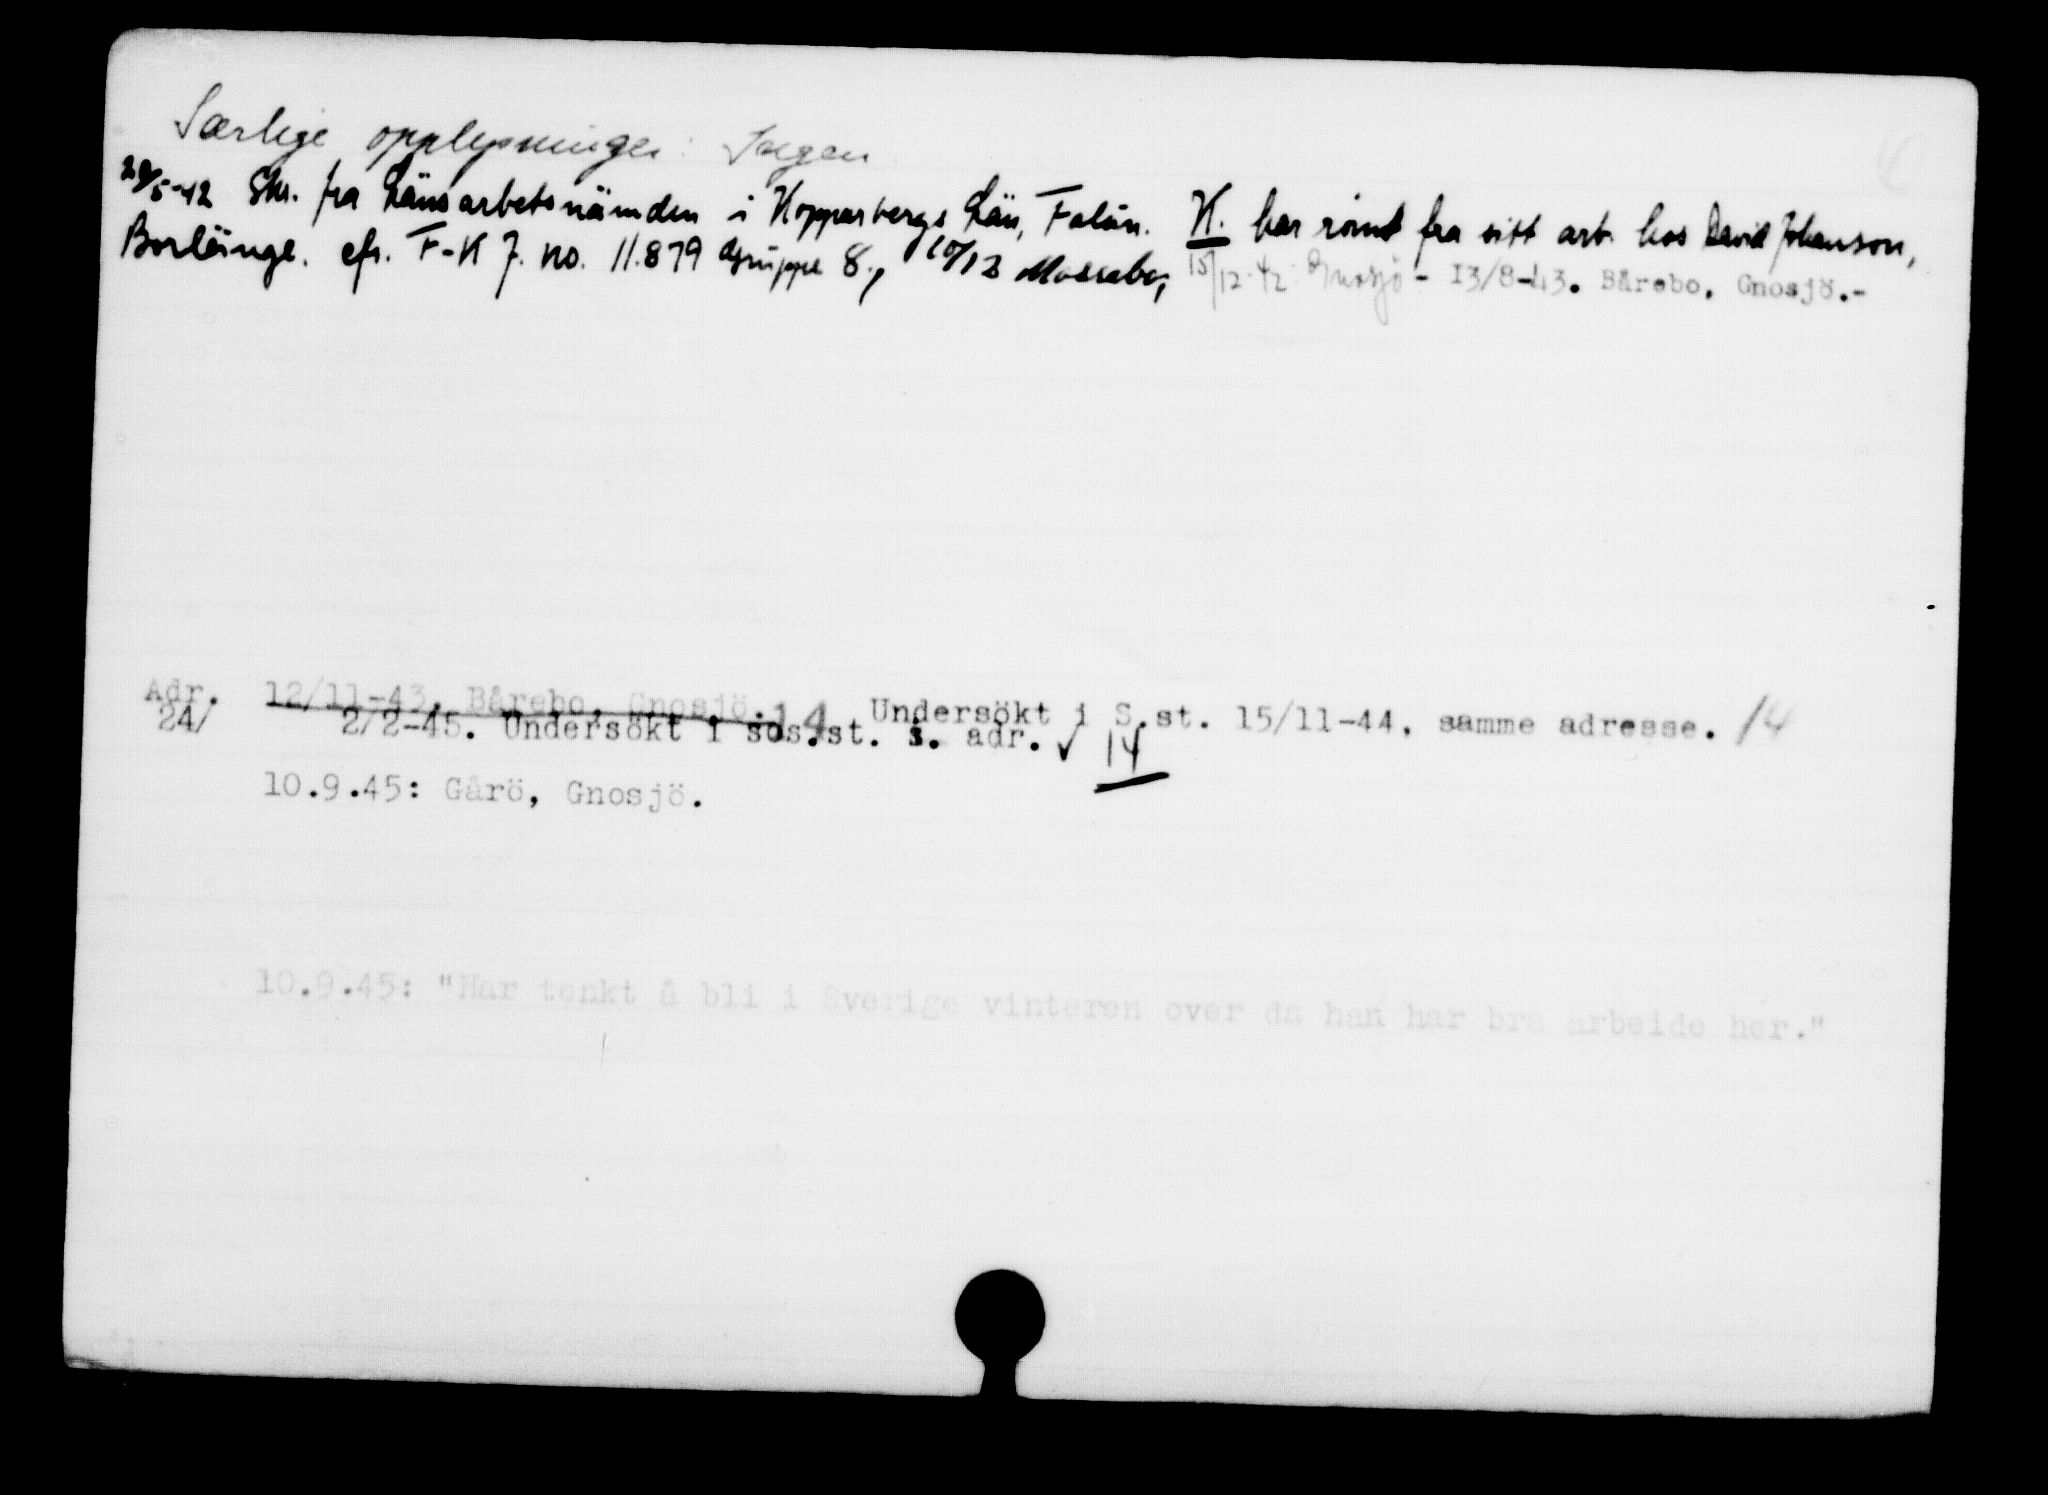 Særlige opplysninger: Ingen
28/5-42 Skr. fra Länsarbetsnämnden i Kopparbergs Län, Falun. H. har römt fra sitt arb. hos David Johanson,
Borlänge. cfr. F-K J. no. 11.879 Gruppe 8., 10/12 Mossebo, 15/12-42 Gnosjö - 13/8-43. Bårebo, Gnosjö.-
Adr. 12/11-43. Bårebo, Gnosjö. 14 Undersökt i S.st. 15/11-44, samme adresse. 14
24/ 2/2-45. Undersökt i sos.st. s. adr. ✓ 14
10.9.45: Gårö, Gnosjö.
10.9.45: "Har tenkt å bli i Sverige vinteren over da han har bra arbeide her."